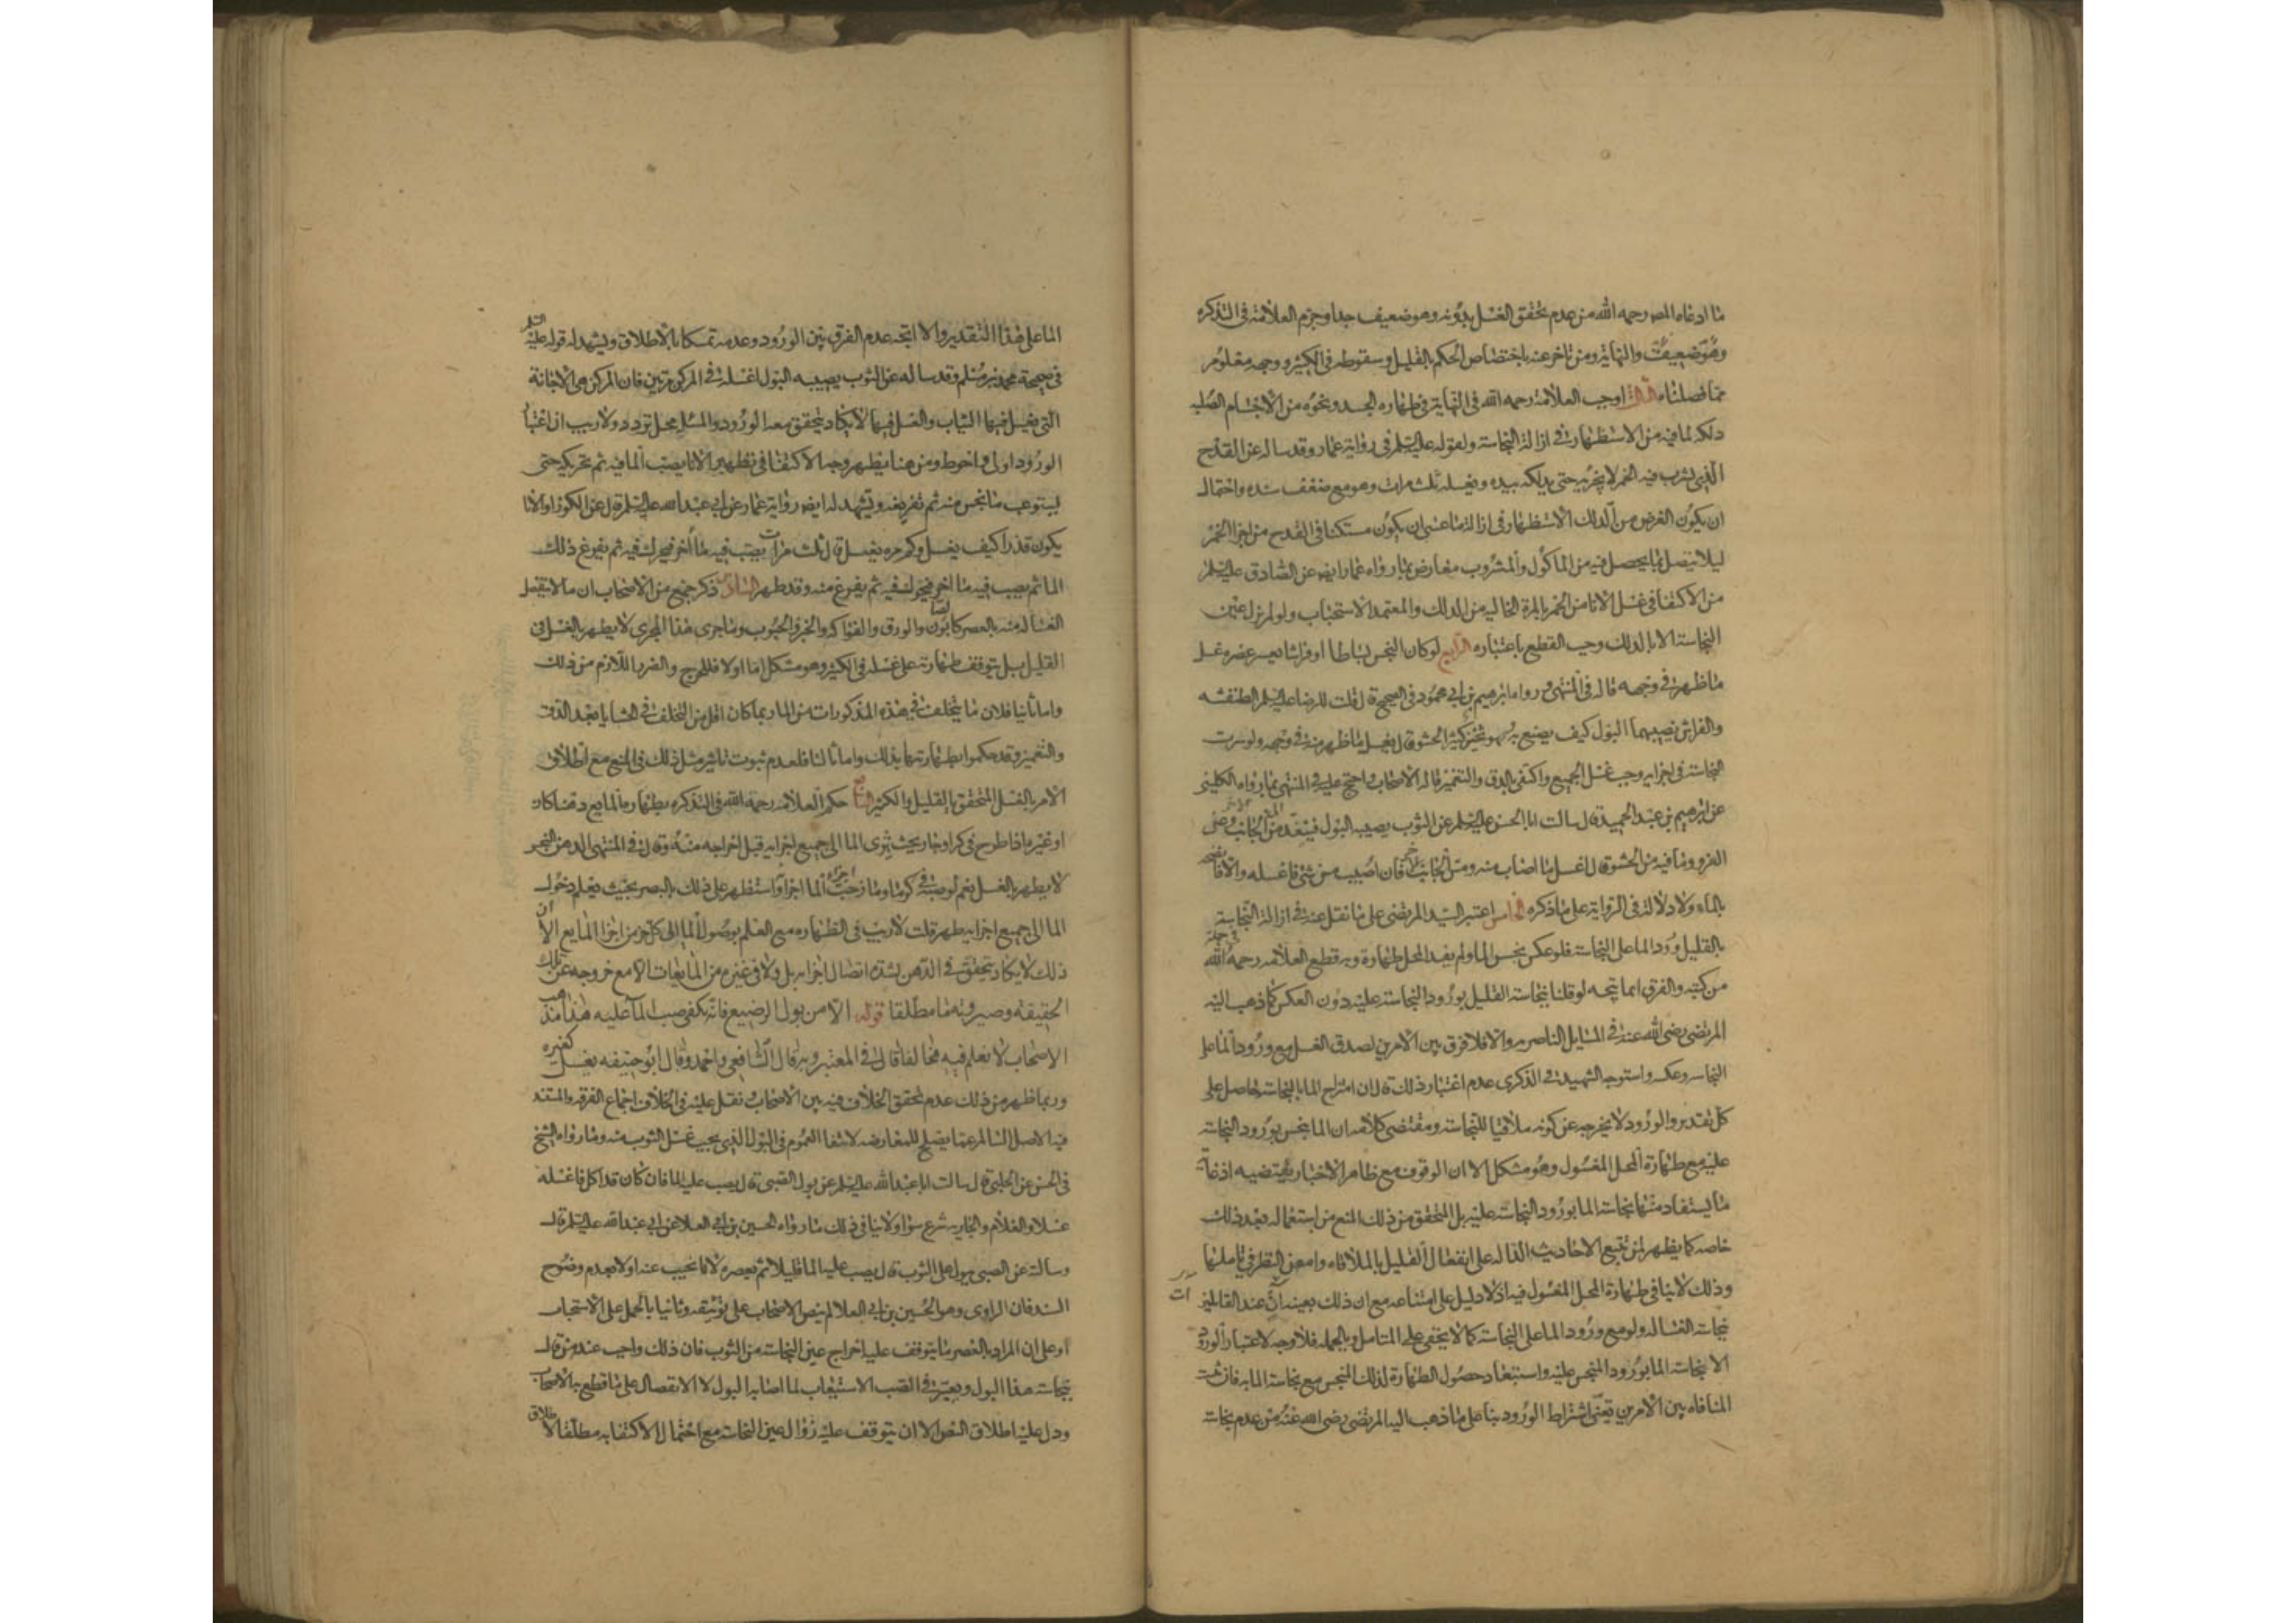 ما ادعاه المصر رحمه الله من عدم تحقق الغسل بدونه وهو ضعيف جدا وجزم العلامة فى التذكره
والنهاية ومن تاخر عنه باختصاص الحكم بالقليل وسقوطه فى الكثير ووجهه معلوم
مما فصلناه الثالث اوجب العلامة رحمه الله فى النهاية فى طهاره الجسد ونحوه من الاجسام الصلبه
دلكه لما فيه من الاستظهار فى ازالة النجاسة ولقوله عليه السلم فى رواية عمار وقد ساله عن القدح
الذى يشرب فيه الخمر لا يجزيه حتى يدلكه بيده ويغسله ثلث مرات وهو مع ضعف سنده واحتمال
ان يكون الغرض من الدلك الاستظهار فى ازالة ما عسى ان يكون مستكنا فى القدح من اجزا الخمر
ليلا يتصل بما يحصل فيه من الماكول والمشروب معارض بما رواه عمار ايضا عن الصادق عليه السلم
من الاكتفا فى غسل الانا من الخمر بالمرة الخاليه من الدلك والمعتمد الاستحباب ولو لم يزل عين
النجاسة الا بالدلك وجب القطع باعتباره الرابع لو كان النجس بساطا او فراشا يعسر عصره غسل
ما ظهر فى وجهه قاله فى المنتهى وروا ما ابرهيم بن ابى محمود فى الصحيح قال قلت للرضا عليه السلم الطنفسه
والفراش يصيبهما البول كيف يصنع به وهو ثخين كثير الحشو قال يغسل ما ظهر منه فى وجهه ولو سرت
النجاسة فى اجزايه وجب غسل الجميع واكتفى بالدق والتغميز قاله الاصحاب واحتج عليه فى المنتهى بما رواه الكلينى
عن ابرهيم بن عبد الحميد قال سالت ابا الحسن عليه السلم عن الثوب يصيبه البول فينفذ من الجانب الاخر وعن
الفرو وما فيه من الحشو قال اغسل ما اصاب منه ومس الجانب الاخر فان اصبت مس شئ فاغسله والا فانضحه
بالماء ولا دلالة فى الرواية على ما ذكره الخامس اعتبر السيد المرتضى على ما نقل عنه فى ازالة النجاسة
بالقليل ورود الما على النجاسة فلو عكس نجس الما ولم يفد المحل طهارة وبه قطع العلامه رحمه الله فى جملة
من كتبه والفرق انما يتجه لو قلنا بنجاسة القليل بورود النجاسة عليه دون العكس كما ذهب اليه
المرتضى رضى الله عنه فى المسايل الناصريه والا فلا فرق بين الامرين لصدق الغسل مع ورود الما على
النجاسه وعكسه واستوجه الشهيد فى الذكرى عدم اعتبار ذلك قال لان امتزاج الما بالنجاسة حاصل على
كل تقدير والورود لا يخرجه عن كونه ملاقيا للنجاسة ومقتضى كلامه ان الما ينجس بورود النجاسة
عليه مع طهارة المحل المغسول وهو مشكل الا ان الوقوف مع ظاهر الاخبار يقتضيه اذ غاية
ما يستفاد منها نجاسة الما بورود النجاسة عليه بل المتحقق من ذلك المنع من استعماله بعد ذلك
خاصه كما يظهر لمن تتبع الاحاديث الداله على انفعال القليل بالملاقاه وامعن النظر فى تاملها
وذلك لا ينافى طهارة المحل المغسول فيه اذ لا دليل على امتناعه مع ان ذلك بعينه آت عند القايلين
نجاسة الغساله ولو مع ورود الما على النجاسة كما لا يخفى على المتامل وبالجمله فلا وجه لاعتبار الورود
الا نجاسة الما بورود المنجس عليه واستبعاد حصول الطهارة لذلك المنجس مع نجاسة الما به فان ثبت
المنافاه بين الامرين تعين اشتراط الورود بنا على ما ذهب اليه المرتضى رضى الله عنه من عدم نجاسة
الما على هذا التقدير والا اتجه عدم الفرق بين الورود وعدمه تمسكا بالاطلاق ويشهد له قوله عليه السلم
فى صحيحة محمد بن مسلم وقد ساله عن الثوب يصيبه البول اغسله فى المركن مرتين فان المركن هى الاجانة
التى يغسل فيها الثياب والغسل فيها لا يكاد يتحقق معه الورود والمسئله محل تردد ولا ريب ان اعتبار
الورود اولى واحوط ومن هنا يظهر وجه الاكتفا فى تطهير الانا يصب الما فيه ثم تحريكه حتى
يستوعب ما نجس منه ثم تفريغه ويشهد له ايضا رواية عمار عن ابى عبد الله عليه السلم قال عن الكوز او الانا
يكون قذرا كيف يغسل وكم مره يغسل قال ثلث مرات يصب فيه ما اخر فيحرك فيه ثم يفرغ ذلك
الما ثم يصب فيه ما اخر فيحرك فيه ثم يفرغ منه وقد طهر السادس ذكر جمع من الاصحاب ان ما لا تنفصل
الغساله منه بالعصر كالصابون والورق والفواكه والخبز والحبوب وما جرى هذا المجرى لا يطهر بالغسل فى
القليل بل يتوقف طهارته على غسله فى الكثير وهو مشكل اما اولا فللحرج والضرر اللازم من ذلك
واما ثانيا فلان ما يتخلف فى هذه المذكورات من الما ربما كان اقل من المتخلف فى الحشايا بعد الدق
والتغميز وقد حكموا بطهارتها بذلك واما ثالثا فلعدم ثبوت تاثير مثل ذلك فى المنع مع اطلاق
الامر بالغسل المتحقق بالقليل والكثير السابع حكم العلامه رحمه الله فى التذكره بطهاره المايع دهنا كان
او غيره اذا طرح فى كر او جار بحيث تسرى الما الى جميع اجزايه قبل اخراجه منه وقال فى المنتهى الدهن النجس
لا يطهر بالغسل نعم لو صب فى كر ما ومازجت اجزاء الما اجزاءه استظهر على ذلك بالبصر بحيث يعلم دخول
الما الى جميع اجزايه طهر قلت لا ريب فى الطهاره مع العلم بوصول الما الى كل جزء من اجزا المايع الا ان
ذلك لا يكاد يتحقق فى الدهن لشده اتصال اجزايه بل ولا فى غيره من المايعات الا مع خروجه عن تلك
الحقيقة وصيرورته ما مطلقا قوله الا من بول الرضيع فانه يكفى صب الما عليه هذا مذهب
الاصحاب لا نعلم فيه مخالفا قال فى المعتبر وبه قال الشافعى واحمد وقال ابو حنيفه يغسل كغيره
وربما ظهر من ذلك عدم تحقق الخلاف فيه بين الاصحاب ونقل عليه فى الخلاف اجماع الفرقه والمستند
فيه الاصل السالم عما يصلح للمعارضه لانتفا العموم فى البول الذى يجب غسل الثوب منه وما رواه الشيخ
فى الحسن عن الحلبى قال سالت ابا عبد الله عليه السلم عن بول الصبى قال يصب عليه الما فان كان قد اكل فاغسله
غسلا والغلام والجاريه شرع سوا ولا ينافى ذلك ما رواه الحسين بن ابى العلا عن ابى عبد الله عليه السلم قال
وسالته عن الصبى يبول على الثوب قال يصب عليه الما قليلا ثم يعصره لانا نجيب عنه اولا بعدم وضوح
السند فان الراوى وهو الحسين بن ابى العلا لم ينص الاصحاب على توثيقه وثانيا بالحمل على الاستحباب
او على ان المراد بالعصر ما يتوقف عليه اخراج عين النجاسة من الثوب فان ذلك واجب عند من قال
بنجاسة هذا البول ويعتبر فى الصب الاستيعاب لما اصابه البول لا الانفصال على ما قطع به الاصحاب
ودل عليه اطلاق النص الا ان يتوقف عليه زوال عين النجاسة مع احتمال الاكتفا به مطلقا لاطلاق